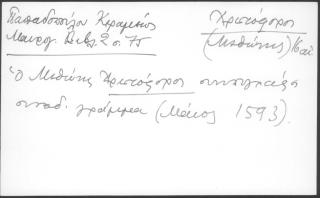 Παπαδοπούλου Κεραμέως
Μαυρογ. Βιβλ. 2 σ. 75
Χριστόφορος
(Μεθώνης) 16 αἰ
Ὁ Μεθώνης Χριστόφορος συνυπογράφει
συνοδ. γράμμα (Μάιος 1593).